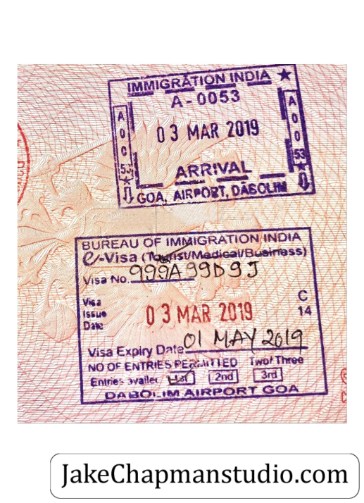 IMMIGRATION INDIA
A-0053
03 MAR 2019
ARRIVAL
GOA, AIRPORT, DABOLIM
BUREAU OF IMMIGRATION INDIA
e-Visa (Tourist/Medical/Business)
Visa No. 999A99D9J
Visa
Issue
Date
03 MAR 2019
C
14
Visa Expiry Date 01 MAY 2019
NO OF ENTRIES PERMITTED Two/Three
Entries availed 1st 2nd 3rd
DABOLIM AIRPORT GOA
JakeChapmanstudio.com